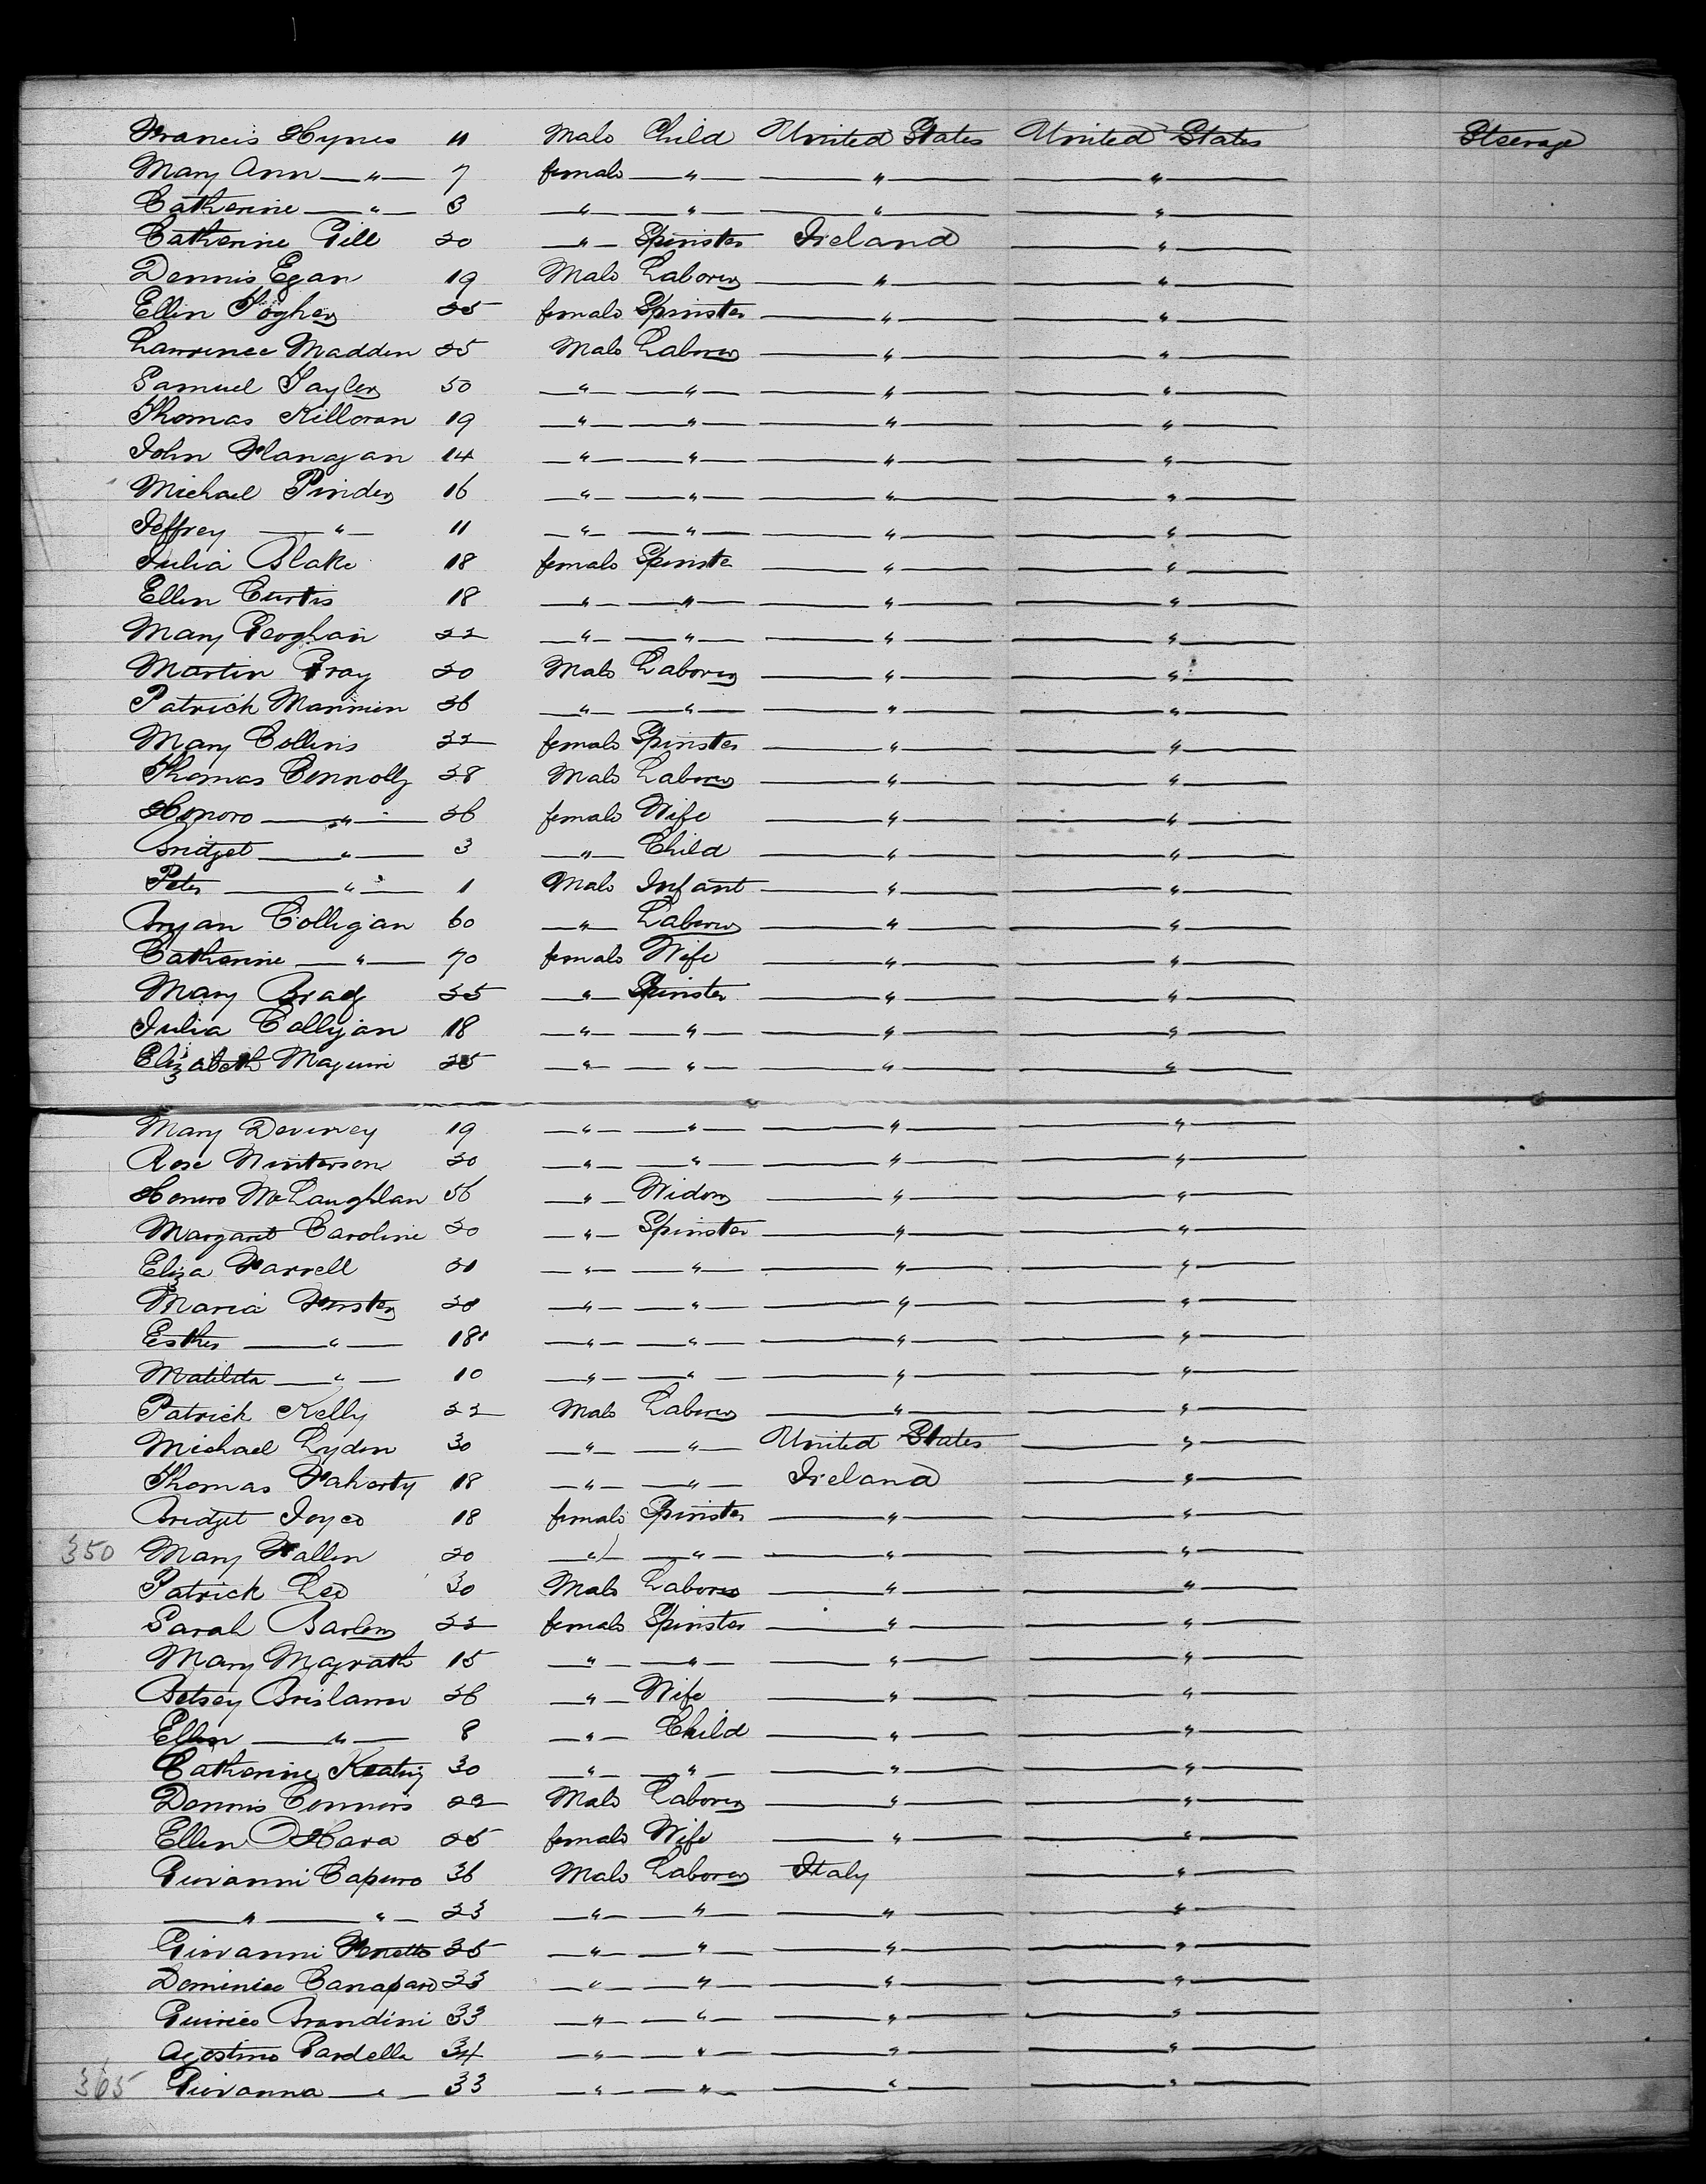 Francis Hynes 11 Male Child United States United States Steerage
Mary Ann — " — 7 female — " — — " — — " —
Catherine — " — 3 — " — — " — — " — — " —
Catherine Gill 20 — " — Spinster Ireland — " —
Dennis Egan 19 Male Laborer — " — — " —
Ellen Togher 25 female Spinster — " — — " —
Lawrence Madden 25 Male Laborer — " — — " —
Samuel Tayler 50 — " — — " — — " — — " —
Thomas Killoran 19 — " — — " — — " — — " —
John Flanagan 14 — " — — " — — " — — " —
Michael Pinder 16 — " — — " — — " — — " —
Jeffrey — " — 11 — " — — " — — " — — " —
Julia Blake 18 female Spinster — " — — " —
Ellen Curtis 18 — " — — " — — " — — " —
Mary Geoghan 22 — " — — " — — " — — " —
Martin Gray 20 Male Laborer — " — — " —
Patrick Mannion 26 — " — — " — — " — — " —
Mary Collins 22 female Spinster — " — — " —
Thomas Connolly 28 Male Laborer — " — — " —
Honoro — " — 26 female Wife — " — — " —
Bridget — " — 3 — " — Child — " — — " —
Peter — " — 1 Male Infant — " — — " —
Bryan Colligan 60 — " — Laborer — " — — " —
Catherine — " — 70 female Wife — " — — " —
Mary Brady 25 — " — Spinster — " — — " —
Julia Colligan 18 — " — — " — — " — — " —
Elizabeth Maguire 25 — " — — " — — " — — " —
Mary 19 — " — — " — — " — — " —
Rose Winterson 20 — " — — " — — " — — " —
Honoro McLaughlan 56 — " — Widow — " — — " —
Margaret Caroline 20 — " — Spinster — " — — " —
Eliza Farrell 21 — " — — " — — " — — " —
Maria Forster 20 — " — — " — — " — — " —
Esther — " — 18 — " — — " — — " — — " —
Matilda — " — 10 — " — — " — — " — — " —
Patrick Kelly 22 Male Laborer — " — — " —
Michael Lyden 30 — " — — " — United States — " —
Thomas Faherty 18 — " — — " — Ireland — " —
Bridget Joyce 18 female Spinster — " — — " —
350 Mary Fallen 20 — " — — " — — " — — " —
Patrick Leo 30 Male Laborer — " — — " —
Sarah Barlow 22 female Spinster — " — — " —
Mary Magrath 15 — " — — " — — " — — " —
Betsey Brislann 26 — " — Wife — " — — " —
Ellen — " — 8 — " — Child — " — — " —
Catherine Keating 30 — " — — " — — " — — " —
Dennis Connors 22 Male Laborer — " — — " —
Ellen O'Hara 25 female Wife — " — — " —
Giovanni Capuro 36 Male Laborer Italy — " —
— " — — " — 23 — " — — " — — " — — " —
Giovanni 25 — " — — " — — " — — " —
Dominico Canaparo 23 — " — — " — — " — — " —
Quirico Brandini 33 — " — — " — — " — — " —
Agostino Gardella 34 — " — — " — — " — — " —
365 Giovanna — " — 33 — " — — " — — " — — " —